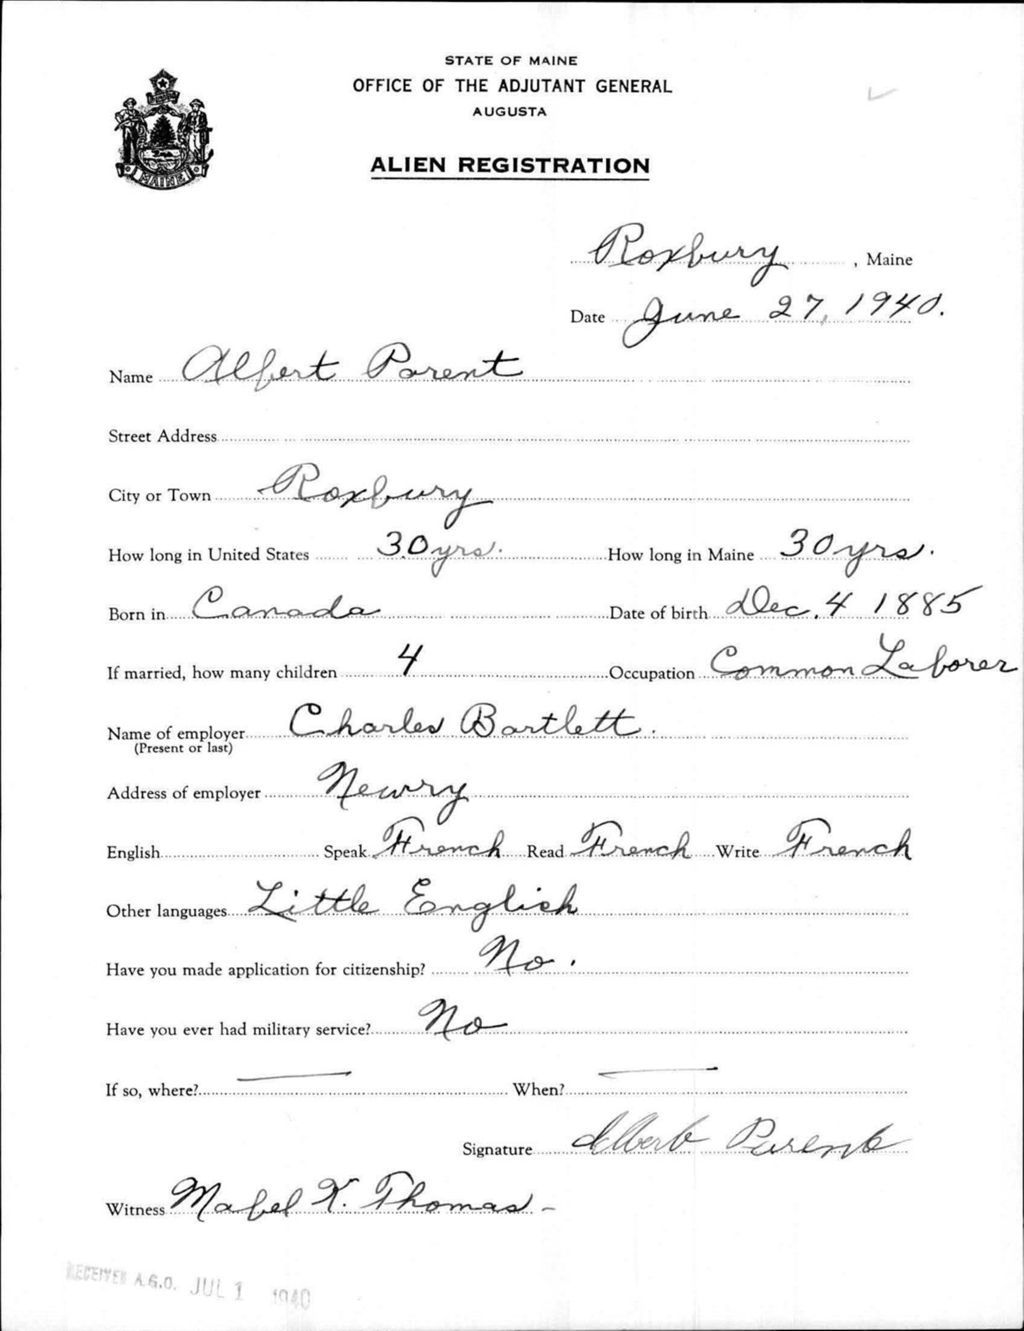 STATE OF MAINE
OFFICE OF THE ADJUTANT GENERAL
AUGUSTA
ALIEN REGISTRATION
MAINE
Roxbury, Maine
Date June 27, 1940.
Name Albert Parent
Street Address
City or Town Roxbury
How long in United States 30 yrs. How long in Maine 30 yrs.
Born in Canada Date of birth Dec. 4 1885
If married, how many children 4 Occupation Common Laborer
Name of employer Charles Bartlett.
(Present or last)
Address of employer Newry
English Speak French Read French Write French
Other languages Little English
Have you made application for citizenship? No.
Have you ever had military service? No
If so, where? — When? —
Signature Albert Parent
Witness Mabel K. Thomas -
RECEIVED A.G.O. JUL 1 1940